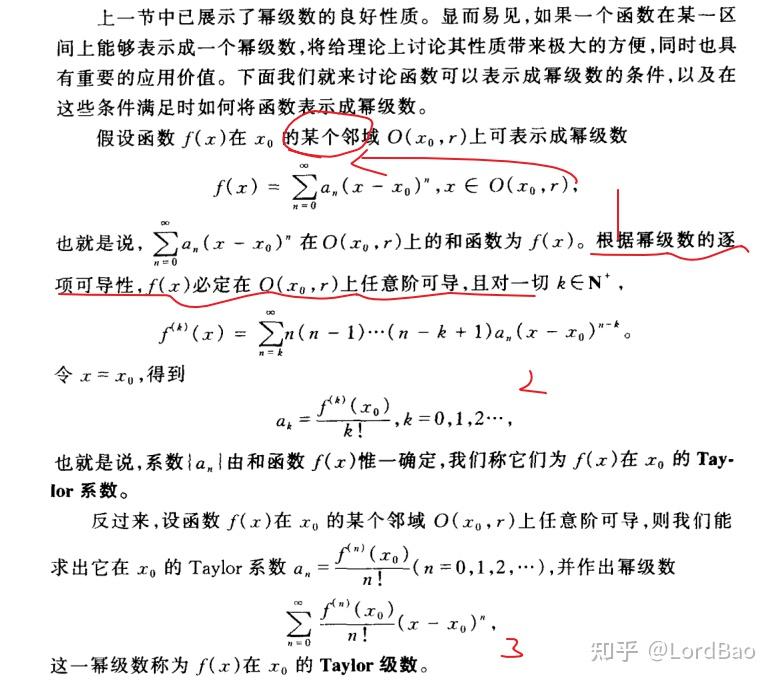 上一节中已展示了幂级数的良好性质。显而易见，如果一个函数在某一区
间上能够表示成一个幂级数，将给理论上讨论其性质带来极大的方便，同时也具
有重要的应用价值。下面我们就来讨论函数可以表示成幂级数的条件，以及在
这些条件满足时如何将函数表示成幂级数。
假设函数 f(x)在 x₀ 的某个邻域 O(x₀,r)上可表示成幂级数
f(x) = ∑_{n=0}^{∞} aₙ(x − x₀)ⁿ, x ∈ O(x₀,r),
也就是说，∑_{n=0}^{∞} aₙ(x − x₀)ⁿ 在 O(x₀,r)上的和函数为 f(x)。根据幂级数的逐
1
项可导性，f(x)必定在 O(x₀,r)上任意阶可导，且对一切 k∈N⁺，
f^{(k)}(x) = ∑_{n=k}^{∞} n(n − 1)⋯(n − k + 1)aₙ(x − x₀)^{n−k}。
令 x = x₀，得到
2
aₖ = f^{(k)}(x₀)/k!, k = 0,1,2⋯,
也就是说，系数{aₙ}由和函数 f(x)惟一确定，我们称它们为 f(x)在 x₀ 的 Tay-
lor 系数。
反过来，设函数 f(x)在 x₀ 的某个邻域 O(x₀,r)上任意阶可导，则我们能
求出它在 x₀ 的 Taylor 系数 aₙ = f^{(n)}(x₀)/n! (n = 0,1,2,⋯)，并作出幂级数
∑_{n=0}^{∞} f^{(n)}(x₀)/n! (x − x₀)ⁿ,
3
这一幂级数称为 f(x)在 x₀ 的 Taylor 级数。
知乎 @LordBao